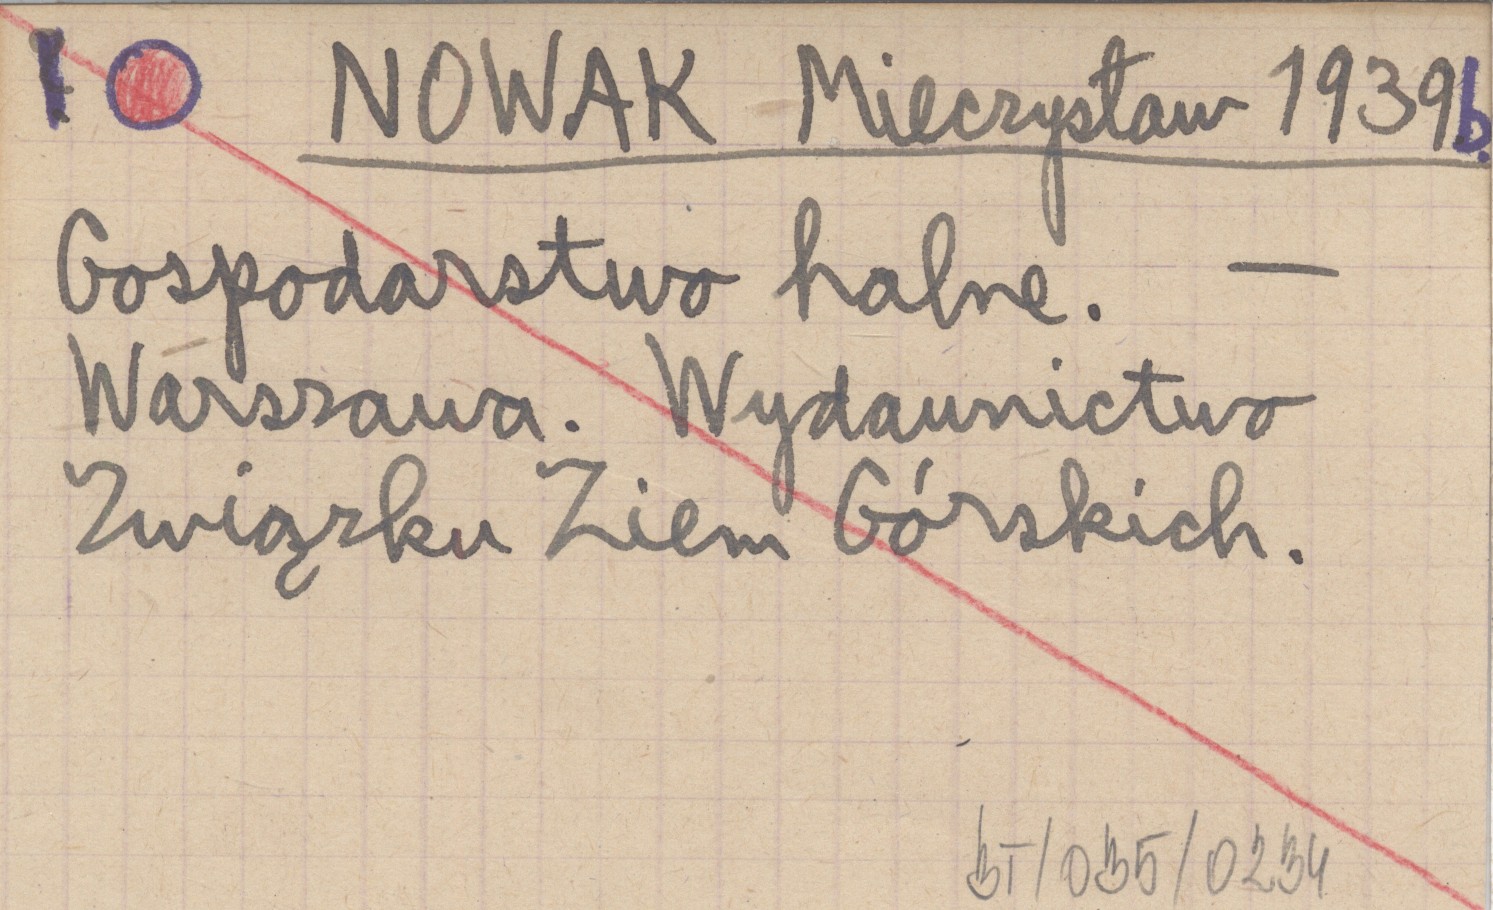 1 NOWAK Mieczysław 1939b.
Gospodarstwo halne. —
Warszawa. Wydawnictwo
Związku Ziem Górskich.
BT/035/0234